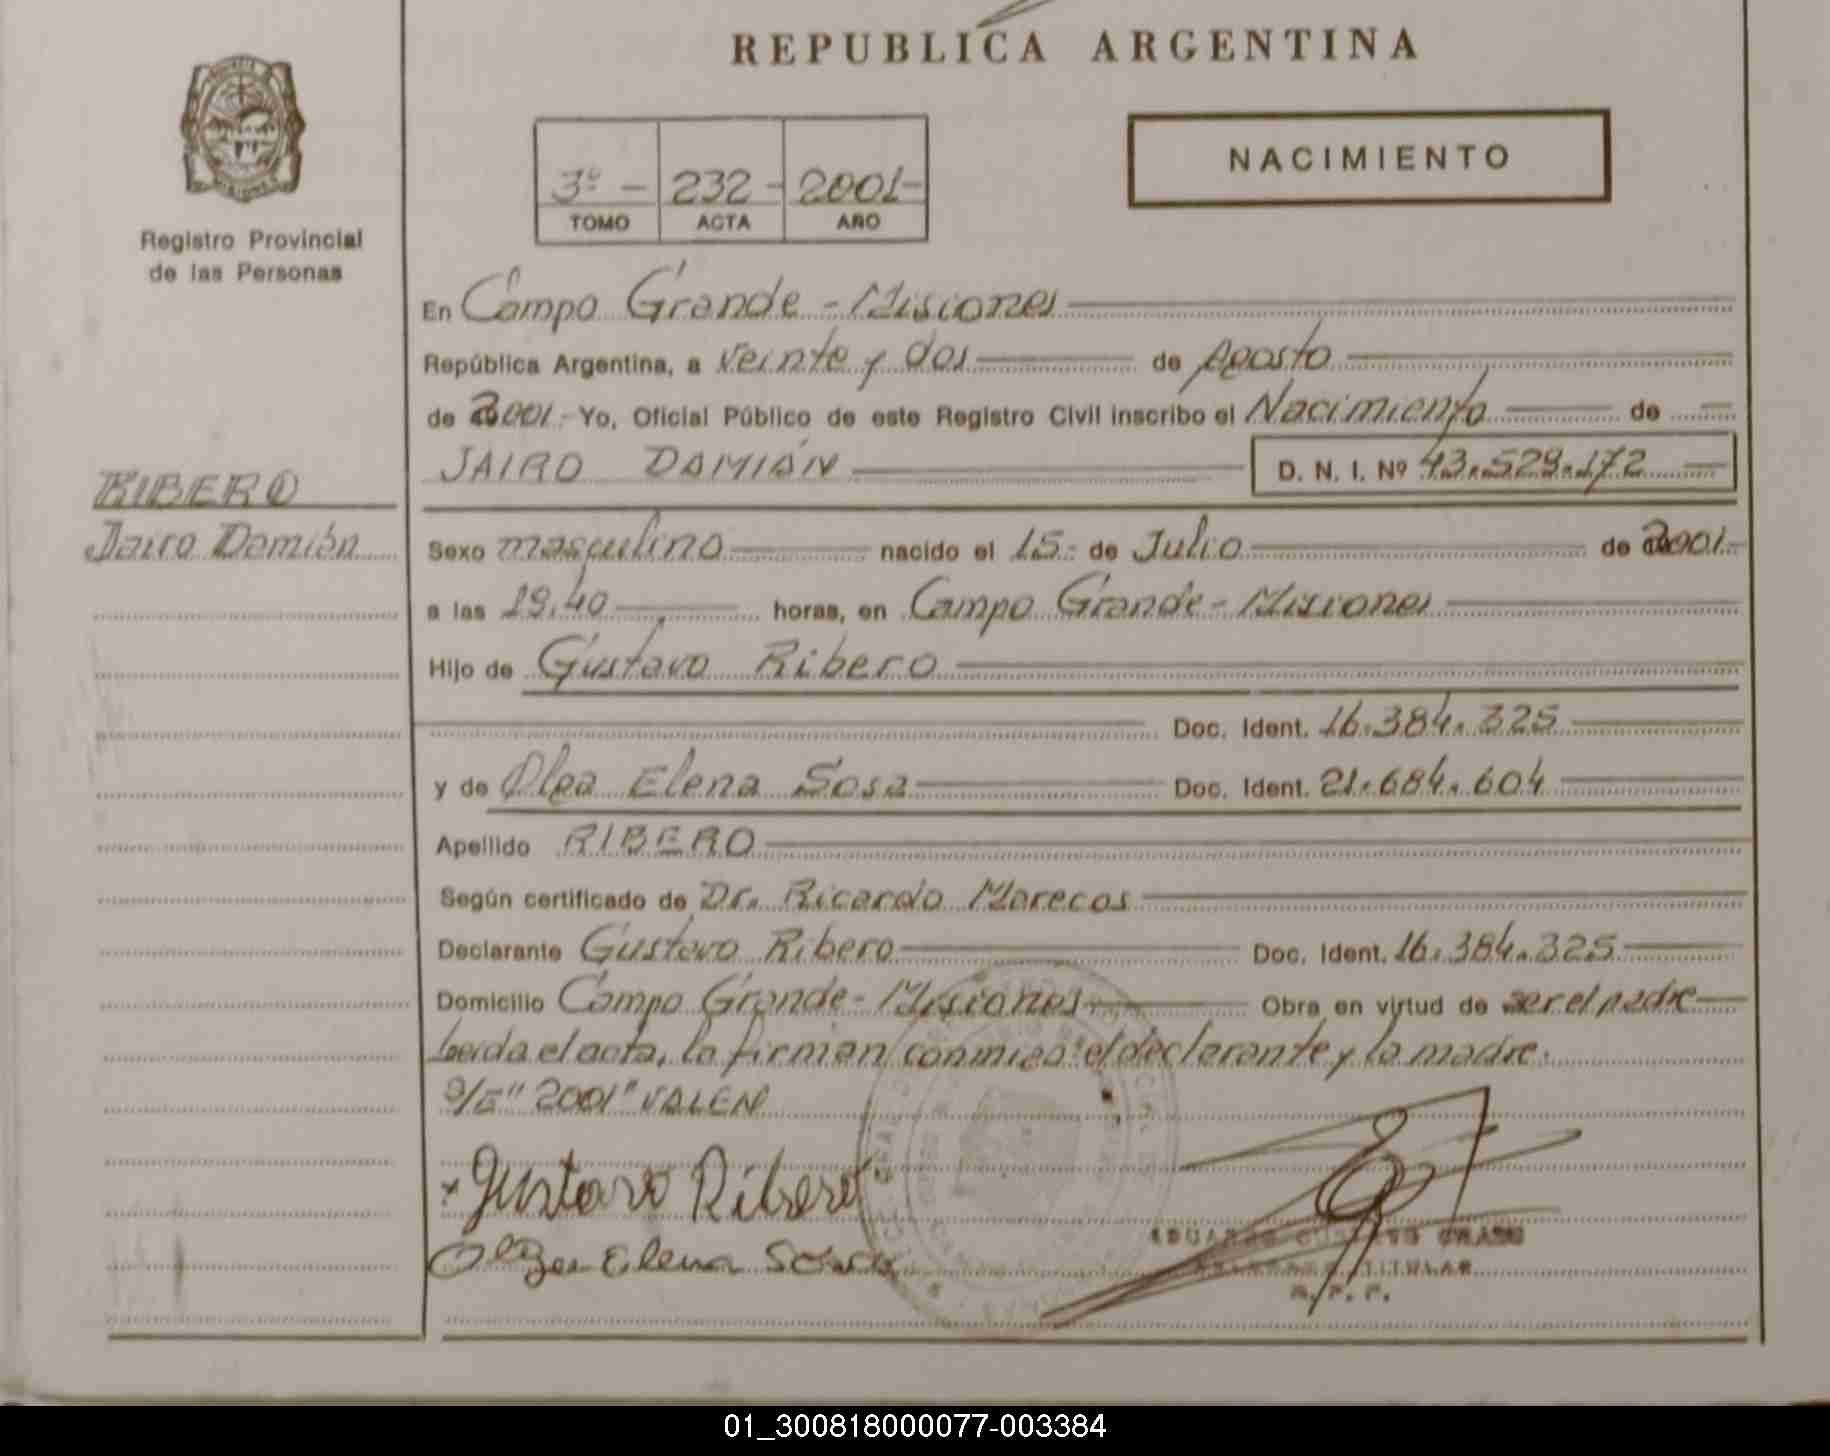 REPUBLICA ARGENTINA
NACIMIENTO
3º - 232 - 2001-
TOMO ACTA AÑO
Registro Provincial
de las Personas
En Campo Grande - Misiones
República Argentina, a Veinte y dos de Agosto
de 2001.- Yo, Oficial Público de este Registro Civil inscribo el Nacimiento de
JAIRO DAMIÁN D. N. I. Nº 43.529.172
RIBERO
Jairo Damián
Sexo masculino nacido el 15.- de Julio de 2001.-
a las 19.40 horas, en Campo Grande - Misiones
Hijo de Gustavo Ribero
Doc. Ident. 16.384.325
y de Olga Elena Sosa Doc. Ident. 21.684.604
Apellido RIBERO
Según certificado de Dr. Ricardo Marecos
Declarante Gustavo Ribero Doc. Ident. 16.384.325
Domicilio Campo Grande - Misiones Obra en virtud de ser el padre
Leída el acta, la firman conmigo el declarante y la madre.
S/E "2001" VALEN
Gustavo Ribero
Olga Elena Sosa
TITULAR
R. P. P.
01_300818000077-003384